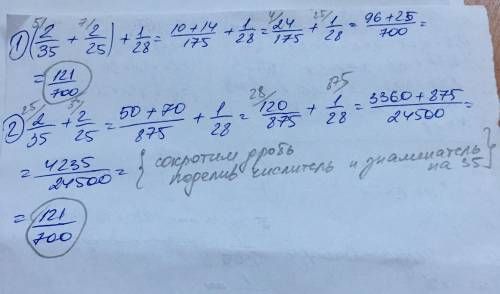 1) (2/35 5/ + 2/25 7/) + 1/28 = 10+14/175 + 1/28 = 24/175 4/ + 1/28 25/ = 96+25/700 =
= 121/700
2) 2/35 25/ + 2/25 35/ = 50+70/875 + 1/28 = 120/875 28/ + 1/28 875/ = 3360+875/24500 =
= 4235/24500 = {сократим дробь
поделив числитель и знаминатель
на 35}
= 121/700